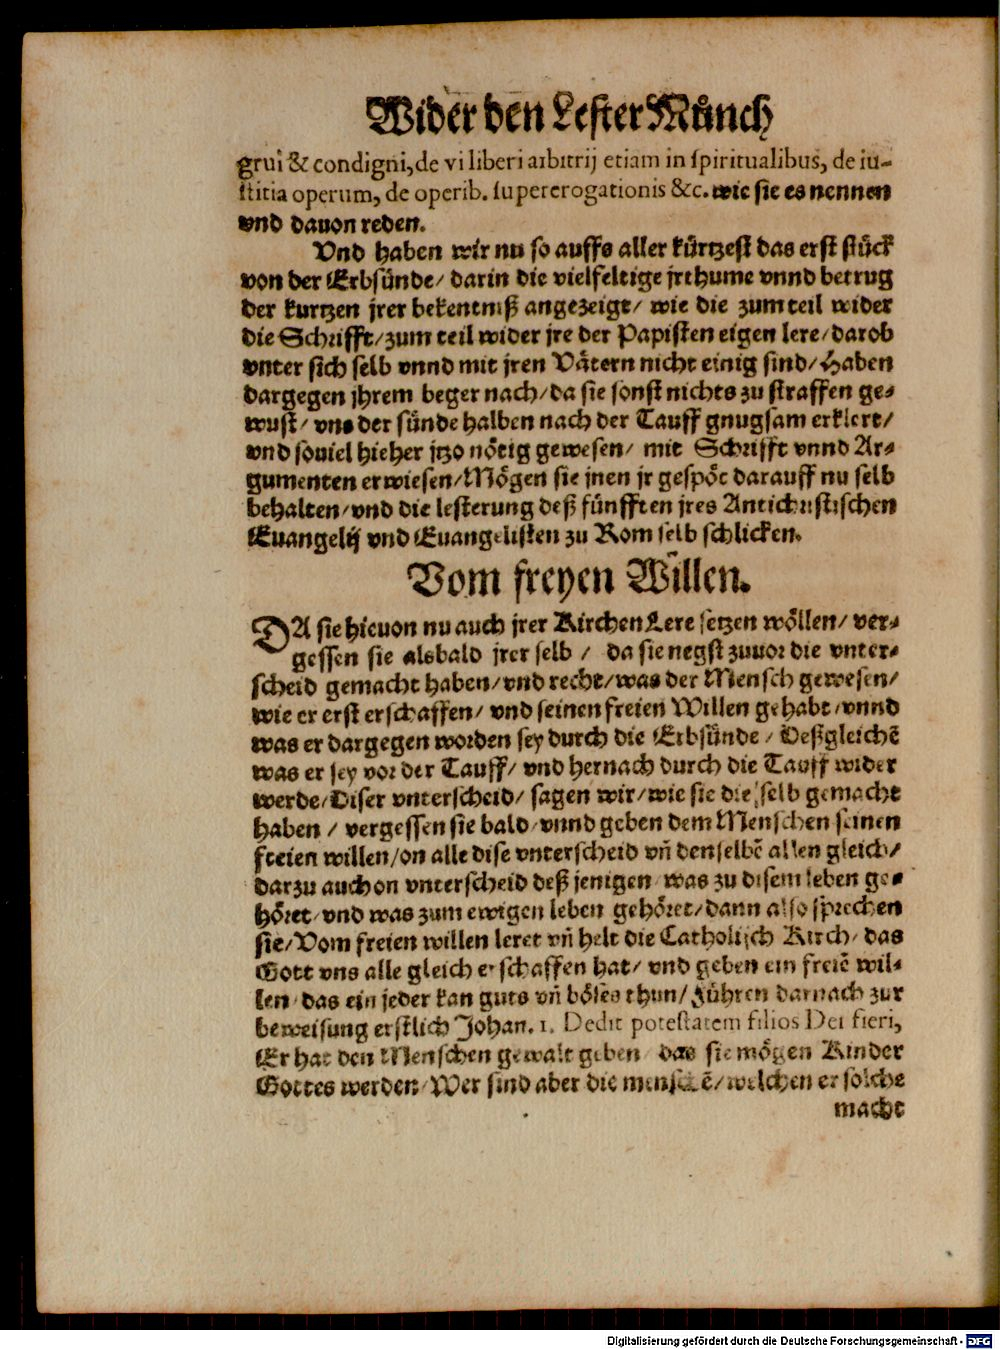 Wider den Lester Münch
grui & condigni, de vi liberi arbitrij etiam in spiritualibus, de iu-
stitia operum, de operib. supererogationis &c. wie sie es nennen
vnd dauon reden.
Vnd haben wir nu so auffs aller kürtzest das erst stück
von der Erbsünde/ darin die vielfeltige jrthume vnnd betrug
der kurtzen jrer bekentniß angezeigt/ wie die zum teil wider
die Schrifft/ zum teil wider jre der Papisten eigen lere/ darob
vnter sich selb vnnd mit jren Vätern nicht einig sind/ Haben
dargegen jhrem beger nach/ da sie sonst nichts zu straffen ge-
wust/ vns der sünde halben nach der Tauff gnugsam erklert/
vnd souiel hieher jtzo nötig gewesen/ mit Schrifft vnnd Ar-
gumenten erwiesen/ Mögen sie jnen jr gespöt darauff nu selb
behalten/ vnd die lesterung deß fünfften jres Antichristischen
Euangelij vnd Euangelisten zu Rom selb schlicken.
Vom freyen Willen.
DA sie hieuon nu auch jrer Kirchen Lere setzen wöllen/ ver-
gessen sie alsbald jrer selb / da sie negst zuuor die vnter-
scheid gemacht haben/ vnd recht/ was der Mensch gewesen/
wie er erst erschaffen/ vnd seinen freien Willen gehabt/ vnnd
was er dargegen worden sey durch die Erbsünde / Deßgleichē
was er sey vor der Tauff/ vnd hernach durch die Tauff wider
werde/ Diser vnterscheid/ sagen wir/ wie sie die selb gemacht
haben / vergessen sie bald/ vnnd geben dem Menschen seinen
freien willen/ on alle dise vnterscheid vn̄ denselbē allen gleich/
darzu auch on vnterscheid deß jenigen was zu disem leben ge-
höret/ vnd was zum ewigen leben gehöret/ dann also sprechen
sie/ Vom freien willen leret vn̄ helt die Catholisch Kirch/ das
Gott vns alle gleich erschaffen hat/ vnd geben ein freiē wil-
len/ das ein jeder kan guts vn̄ böses thun/ Führen darnach zur
beweisung erstlich Johan. 1. Dedit potestatem filios Dei fieri,
Er hat den Menschen gewalt geben das sie mögen Kinder
Gottes werden/ Wer sind aber die menschē/ welchen er solche
macht
Digitalisierung gefördert durch die Deutsche Forschungsgemeinschaft - DFG